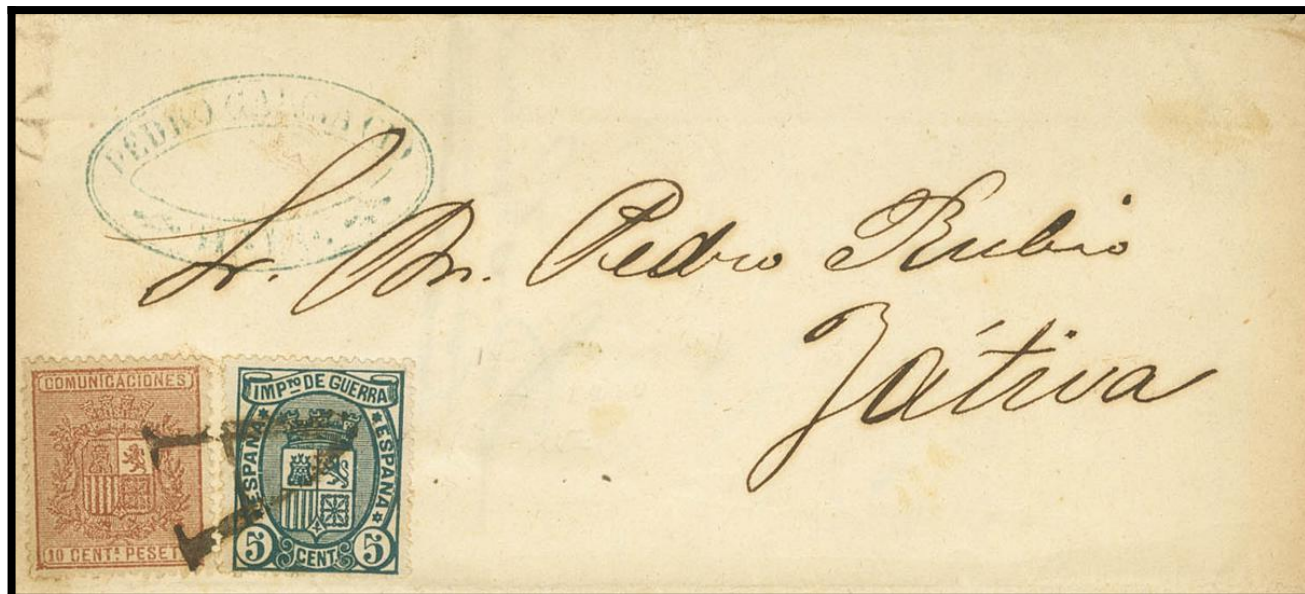 PEDRO
Sr. Dn. Pedro Rubio
Játiva
COMUNICACIONES
10 CENTS PESET
IMPTO DE GUERRA
ESPAÑA
ESPAÑA
5 CENT 5